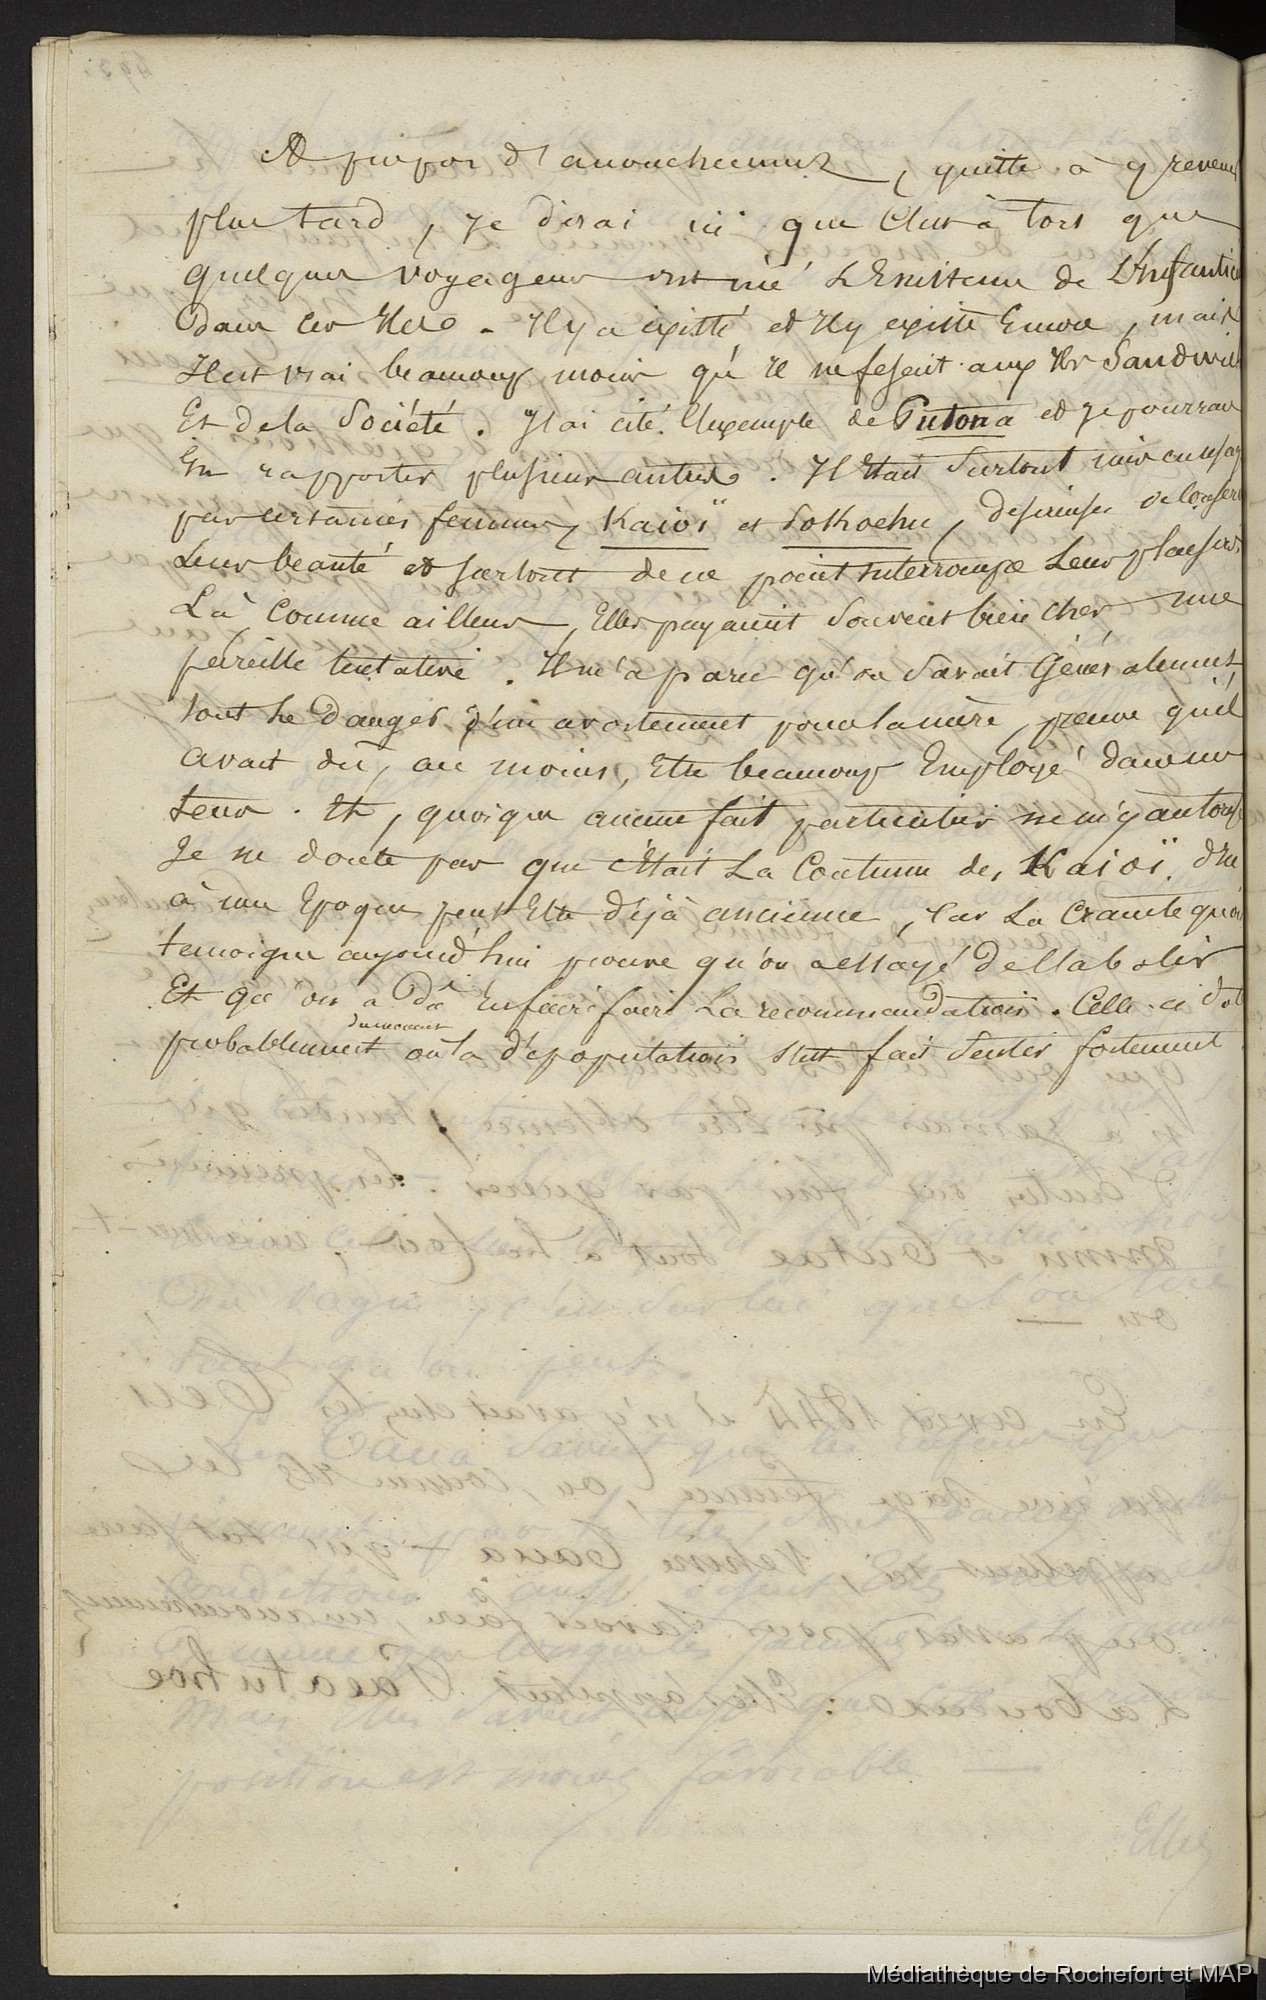 A propos d'accouchement, quitte à y revenir
plus tard, je dirai ici que c'est à tort que
quelques voyageurs ont nié L'Existence de L'Infantici
dans ces Iles. Il y a existé, et Il y existe Encore, mais
Il est vrai beaucoup moins qu'il ne fesait aux Iles Sandwich
Et de la Société. J'ai cité l'exemple de Putona et je pourrai
En rapporter plusieurs autres. Il Etait surtout mis en usag
par certaines femmes, Kaioï et Hokoehu, désireuses de conserv
Leur beauté et surtout de ne point interrompre Leurs plaisirs.
Là comme ailleurs, Elles payaient souvent bien cher une
pareille tentative. Il m'a paru qu'on savait Généralement
tout Le Danger d'un avortement pour la mère, preuve qu'il
avait dû, au moins, Etre beaucoup Employé dans un
tems. Et, quoique aucun fait particulier ne m'y autorise
Je ne doute pas que c'était La Coutume des Kaioï.
à une Epoque peut Etre déjà ancienne, Car La Crainte qu'on
témoigne aujourd'hui prouve qu'on a essayé De l'abolir
Et qu'on a Dû En faire faire La recommandation. Celle-ci dat
du moment
probablement où la dépopulation s'est fait sentir fortement
Médiathèque de Rochefort et MAP